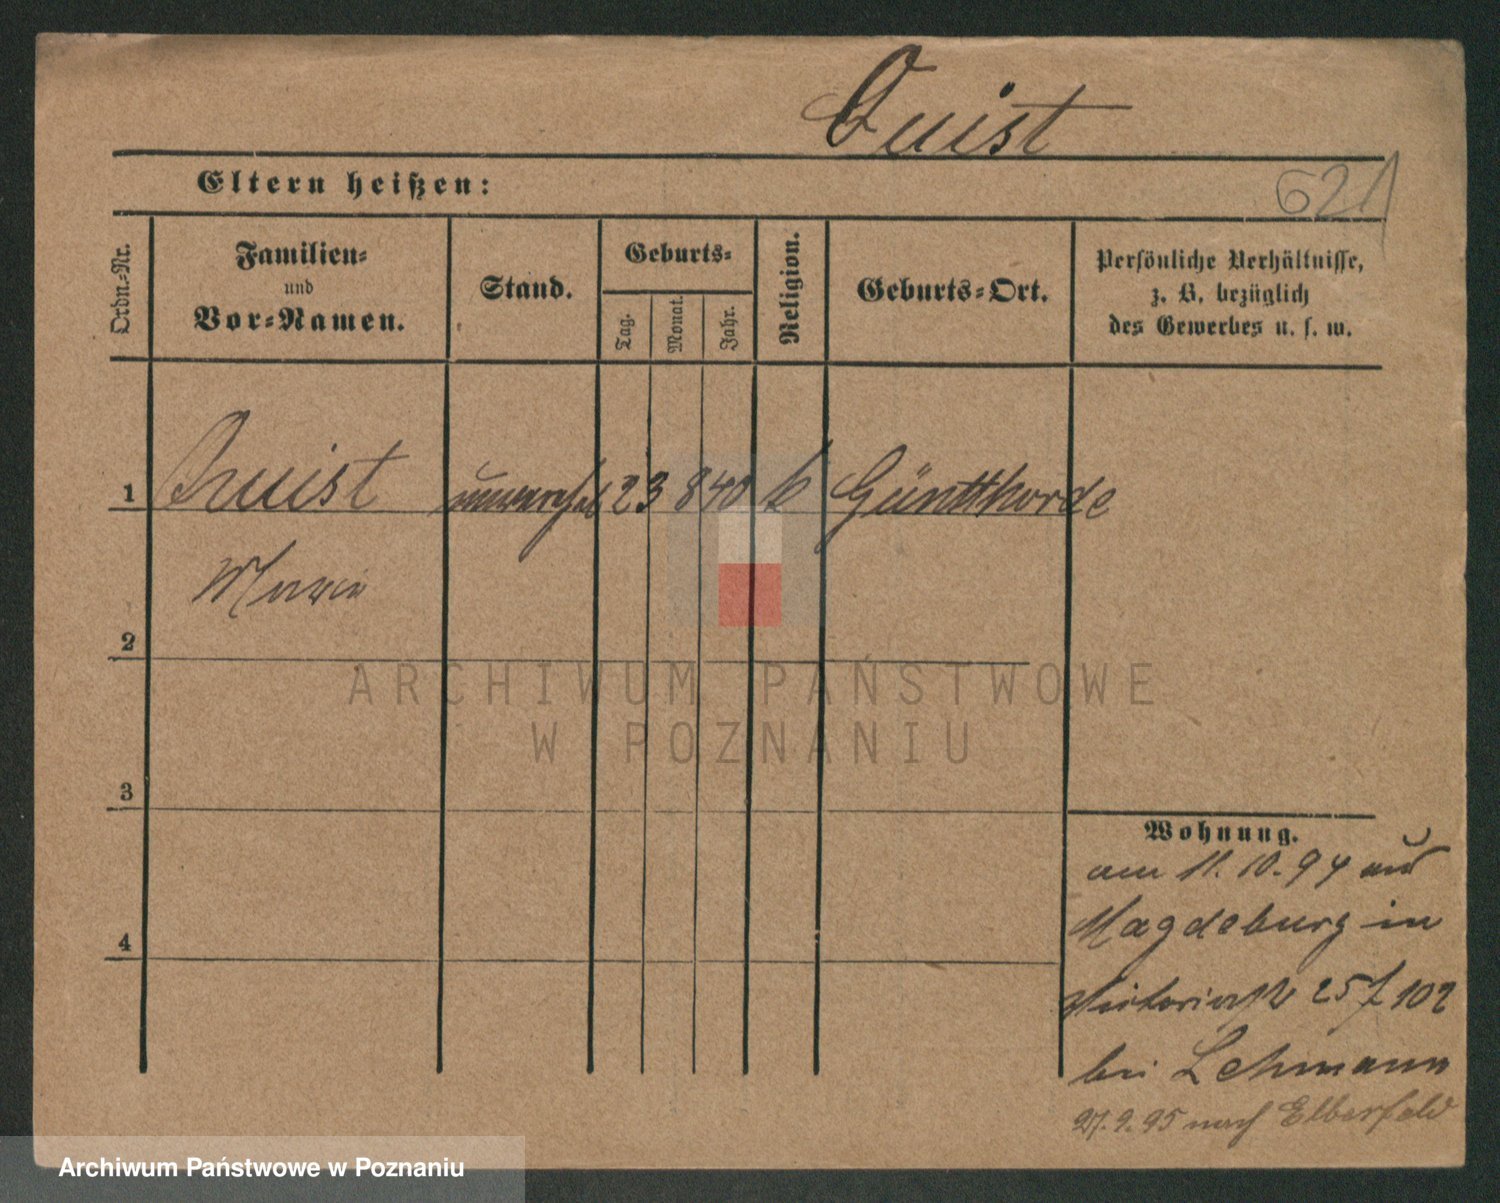 Quist
Eltern heißen:
621
Ordn.-Nr.
Familien-
und
Vor-Namen.
Stand.
Geburts-
Tag.
Monat.
Jahr.
Religion.
Geburts-Ort.
Persönliche Verhältnisse,
z. B. bezüglich
des Gewerbes u. s. w.
1 Quist 23 8 40 k
Marie
2
ARCHIWUM PAŃSTWOWE
W POZNANIU
3
Wohnung.
am 11. 10. 94 aus
4
Magdeburg in
Victoriastr 25 / 102
bei Lehmann
27. 9. 95 nach Elberfeld
Archiwum Państwowe w Poznaniu